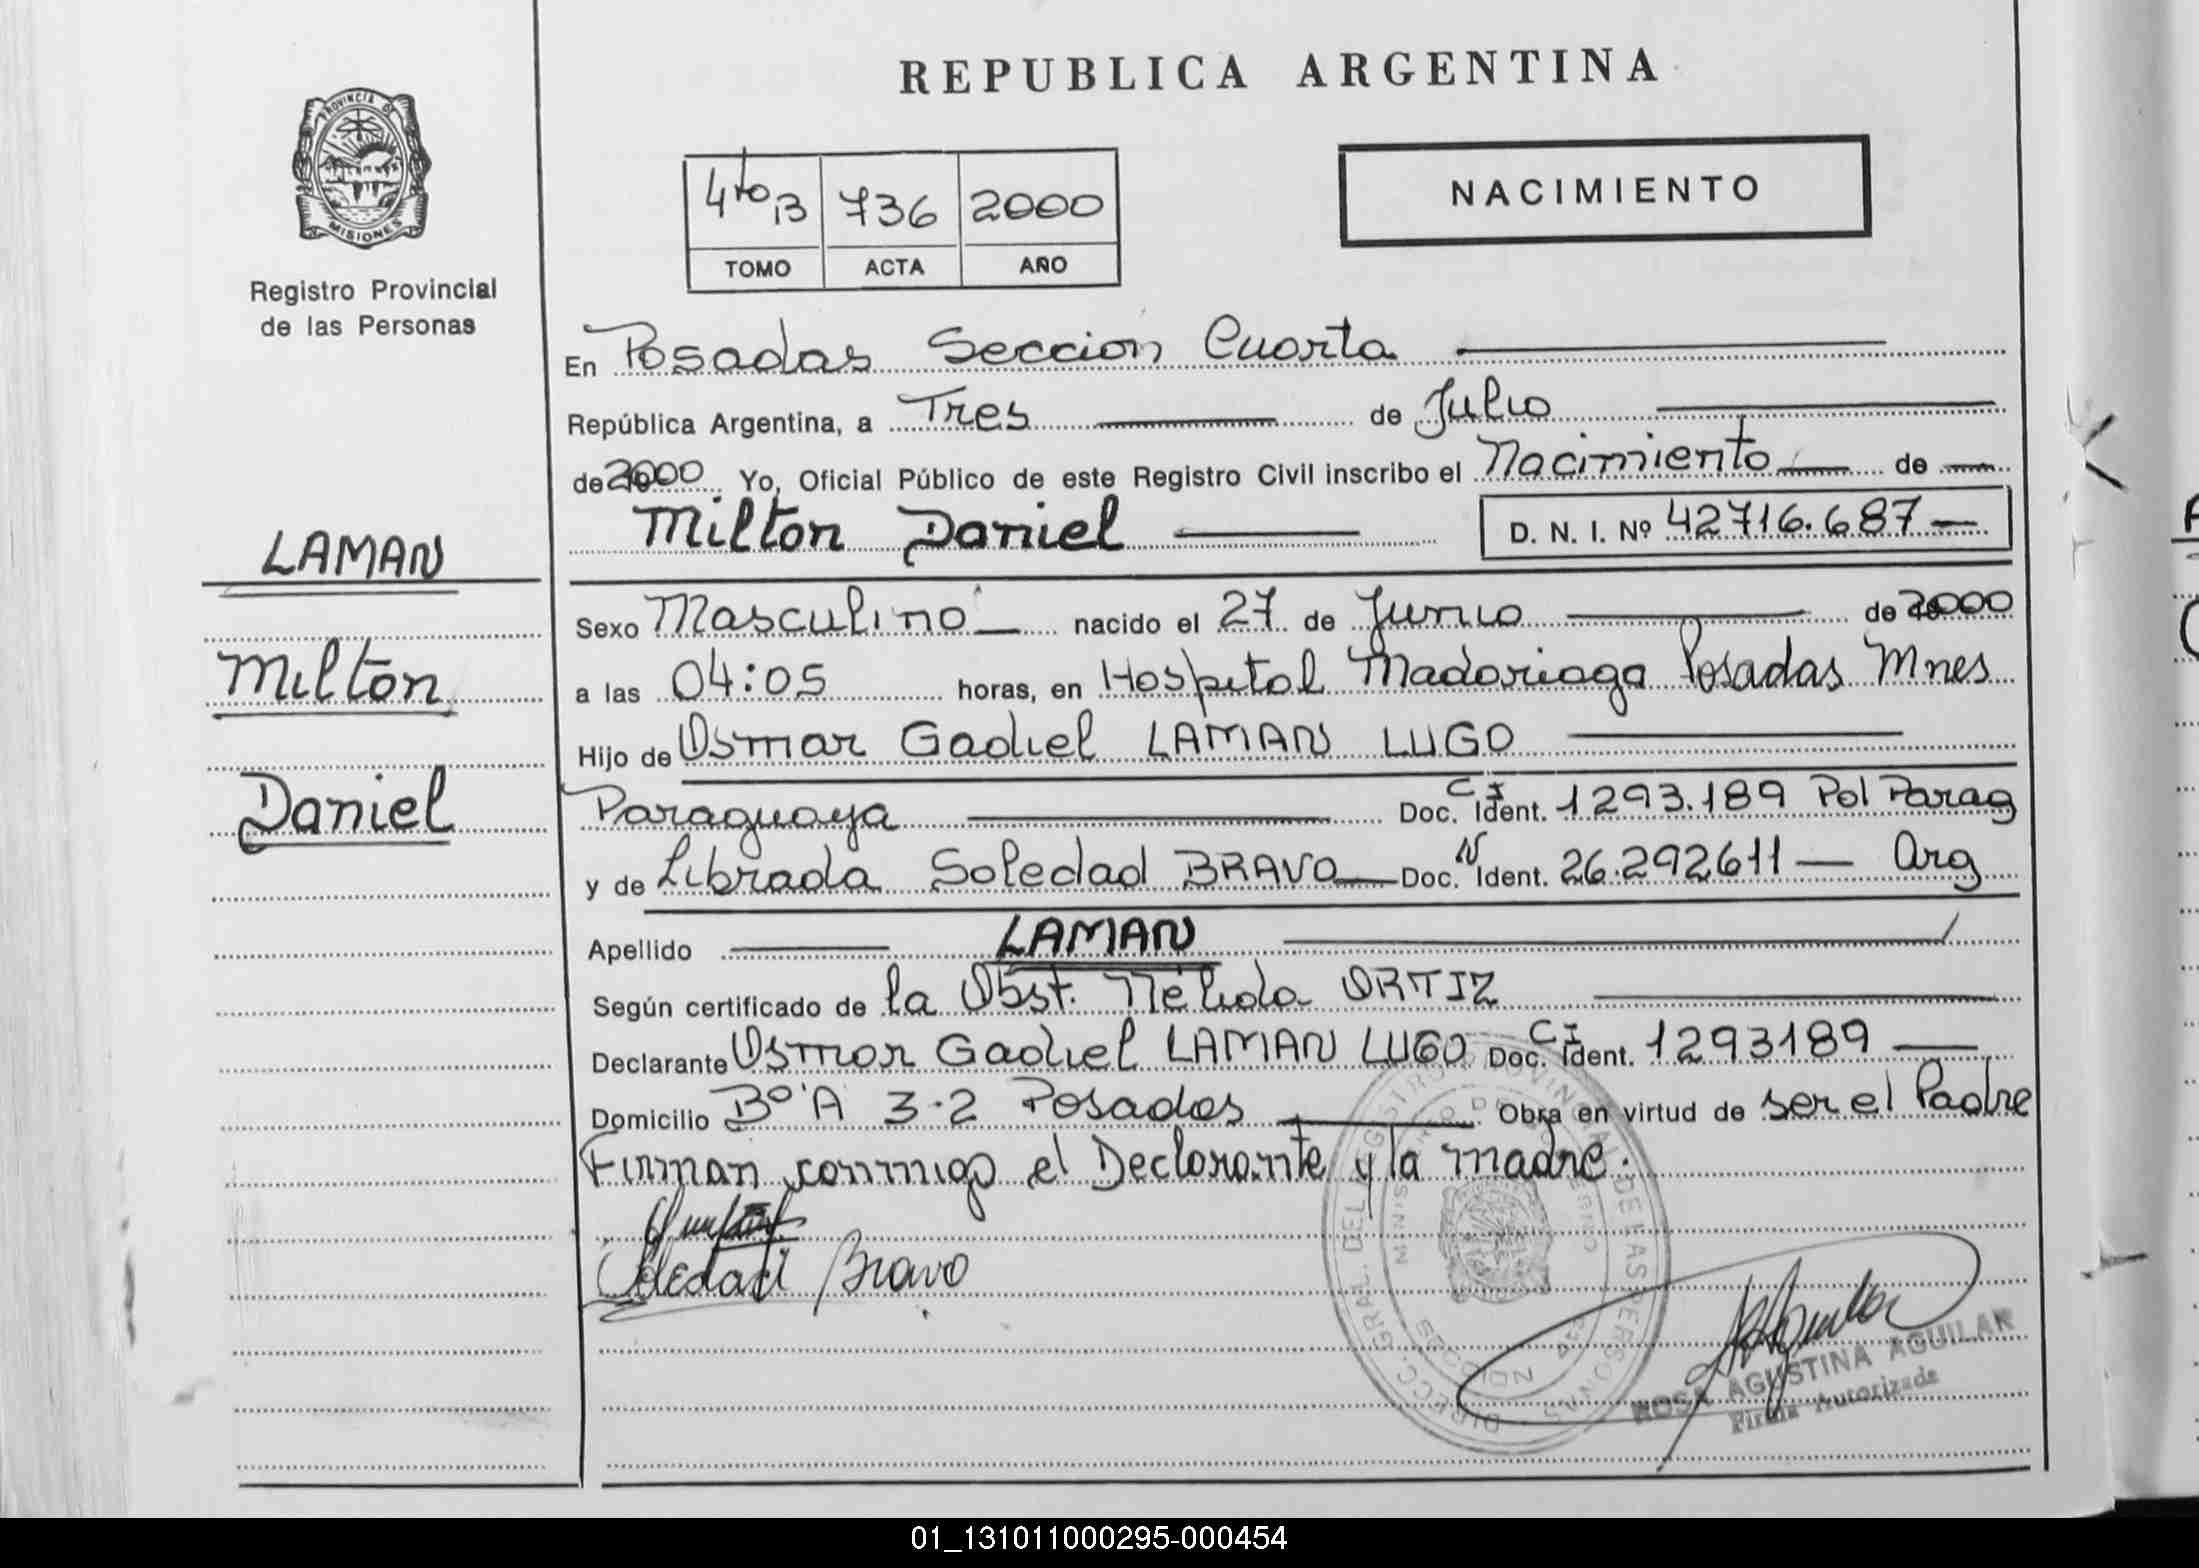 REPUBLICA ARGENTINA
PROVINCIA DE
MISIONES
Registro Provincial
de las Personas
4to B 736 2000
TOMO ACTA AÑO
NACIMIENTO
En Posadas Seccion Cuarta
República Argentina, a Tres de Julio
de 2000 Yo, Oficial Público de este Registro Civil inscribo el Nacimiento de
Milton Daniel D. N. I. Nº 42716.687
LAMAN
Milton
Daniel
Sexo Masculino nacido el 27 de Junio de 2000
a las 04:05 horas, en Hospital Madariaga Posadas Mnes
Hijo de Osmar Gadiel LAMAN LUGO
Paraguaya Doc. CI Ident. 1293.189 Pol Parag
y de Librada Soledad BRAVO Doc. N Ident. 26.292611 Arg
Apellido LAMAN
Según certificado de la Obst. Nélida ORTIZ
Declarante Osmar Gadiel LAMAN LUGO Doc. CI Ident. 1293189
Domicilio Bº A 3-2 Posadas Obra en virtud de ser el Padre
Firman conmigo el Declarante y la madre.
Soledad Bravo
DIRECC. GRAL. DEL REGISTRO PROVINCIAL DE LAS PERSONAS
SECCION 4ta
ROSA AGUSTINA AGUILAR
Firma Autorizada
01_131011000295-000454